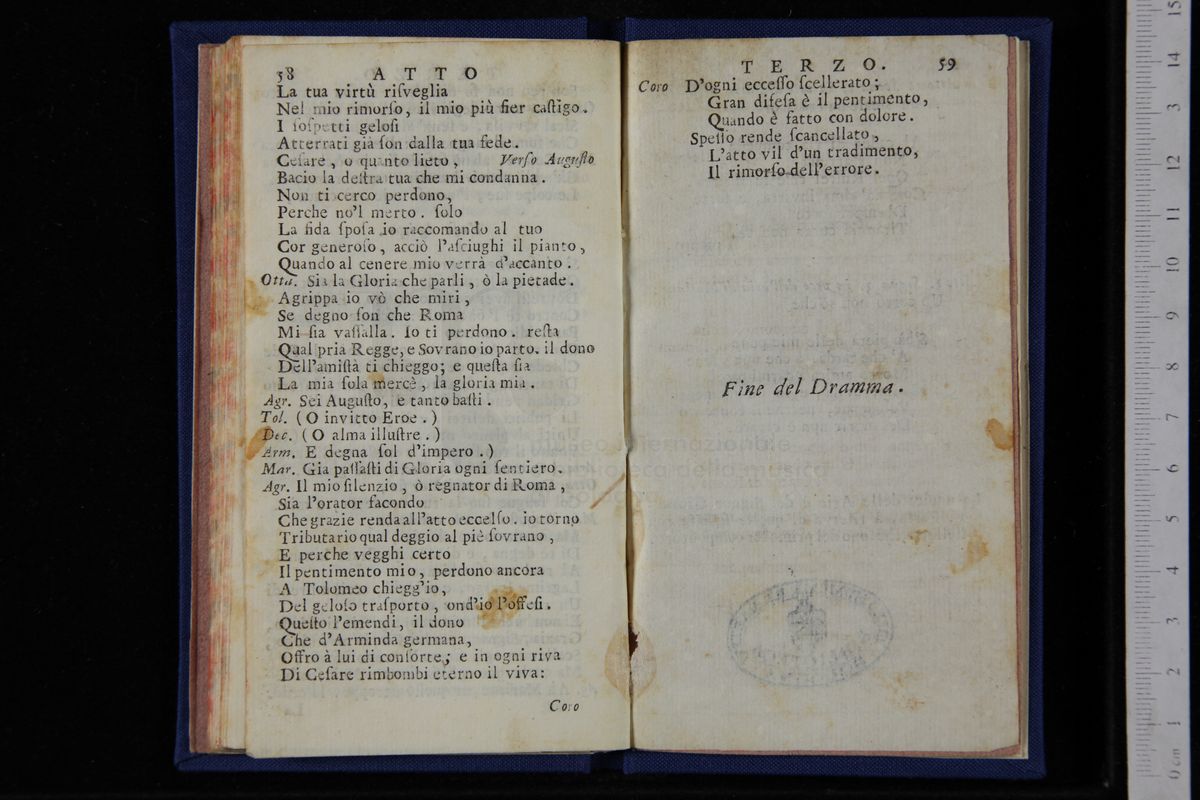 58 ATTO
La tua virtù riſveglia
Nel mio rimorſo, il mio più fier caſtigo.
I ſoſpetti geloſi
Atterrati già ſon dalla tua fede.
Ceſare, o quanto lieto, Verſo Auguſto
Bacio la deſtra tua che mi condanna.
Non ti cerco perdono,
Perche no'l merto. ſolo
La fida ſpoſa io raccomando al tuo
Cor generoſo, acciò l'aſciughi il pianto,
Quando al cenere mio verrà d'accanto.
Otta. Sia la Gloria che parli, ò la pietade.
Agrippa io vò che miri,
Se degno ſon che Roma
Mi ſia vaſſalla. Io ti perdono. reſta
Qual pria Regge, e Sovrano io parto. il dono
Dell'amiſtà ti chieggo; e queſta ſia
La mia ſola mercè, la gloria mia.
Agr. Sei Auguſto, e tanto baſti.
Tol. (O invitto Eroe.)
Dec. (O alma illuſtre.)
Arm. E degna ſol d'impero.)
Mar. Gia paſſaſti di Gloria ogni ſentiero.
Agr. Il mio ſilenzio, ò regnator di Roma,
Sia l'orator facondo
Che grazie renda all'atto eccelſo. io torno
Tributario qual deggio al piè ſovrano,
E perche vegghi certo
Il pentimento mio, perdono ancora
A Tolomeo chiegg'io,
Del geloſo traſporto, ond'io l'offeſi.
Queſto l'emendi, il dono
Che d'Arminda germana,
Offro à lui di conſorte; e in ogni riva
Di Ceſare rimbombi eterno il viva:
Coro
TERZO. 59
Coro D'ogni ecceſſo ſcellerato;
Gran difeſa è il pentimento,
Quando è fatto con dolore.
Speſſo rende ſcancellato,
L'atto vil d'un tradimento,
Il rimorſo dell'errore.
Fine del Dramma.
museo internazionale
biblioteca della musica
15
14
13
12
11
10
9
8
7
6
5
4
3
2
1
0 cm